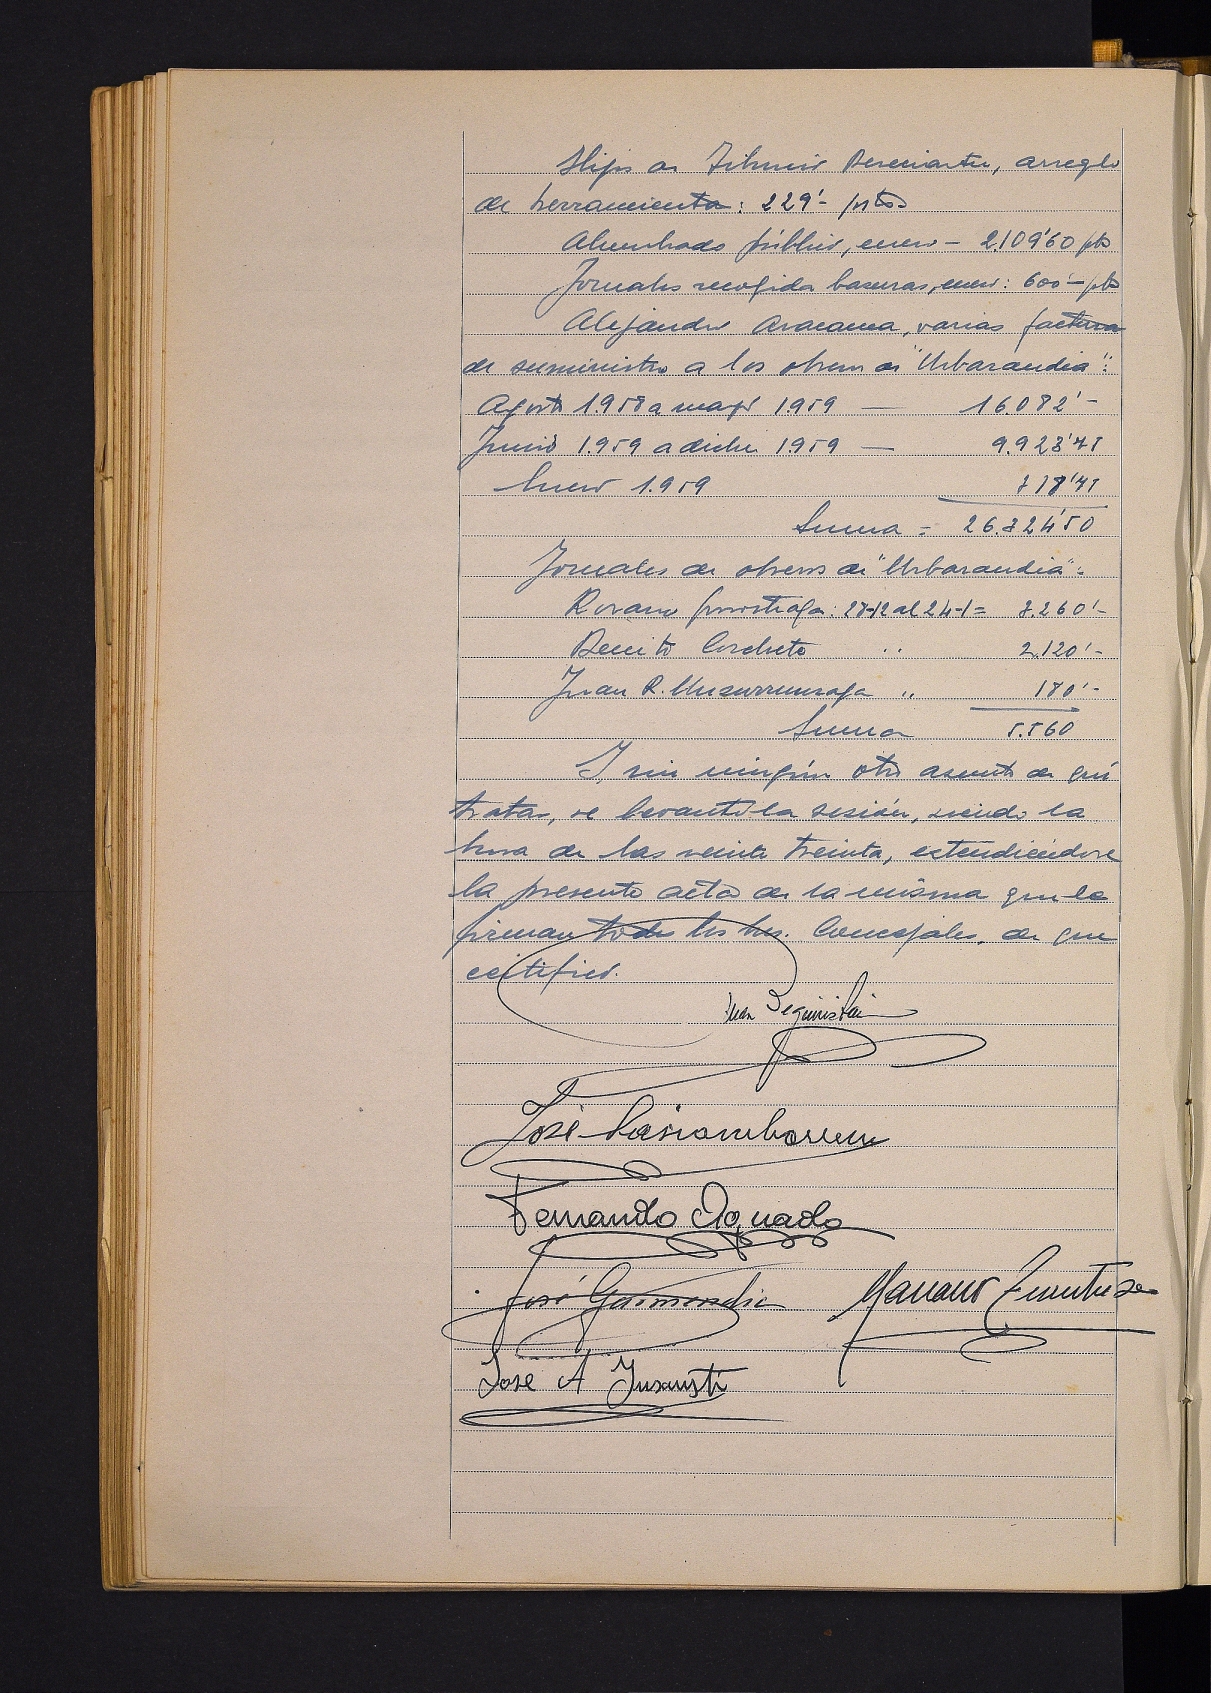 Hijos de Tiburcio Bereciartu, arreglo
de herramienta: 229'- ptas
Alumbrado público, enero - 2.109'60 pts
Jornales recogida basuras, enero: 600'- pts
Alejandro Aracama, varias facturas
de suministro a las obras de "Urbarandia":
Agosto 1.958 a mayo 1.959 — 16.082'-
Junio 1.959 a dicbre 1.959 — 9.923'75
Enero 1.959
Suma = 26.824'50
Jornales de obreros de "Urbarandia":
Rosario 28-12 al 24-1 = 3.260'-
Benito Corcheto " 2.120'-
Juan R. " 180'-
Suma 5.560
Y sin ningún otro asunto de qué
tratar, se levantó la sesión, siendo la
hora de las veinte treinta, extendiéndose
la presente acta de la misma que la
firman todos los Srs. Concejales, de que
certifico.
Juan Beguiristain
José
Fernando Aguado
José Garmendia Mariano
Jose A Insausti